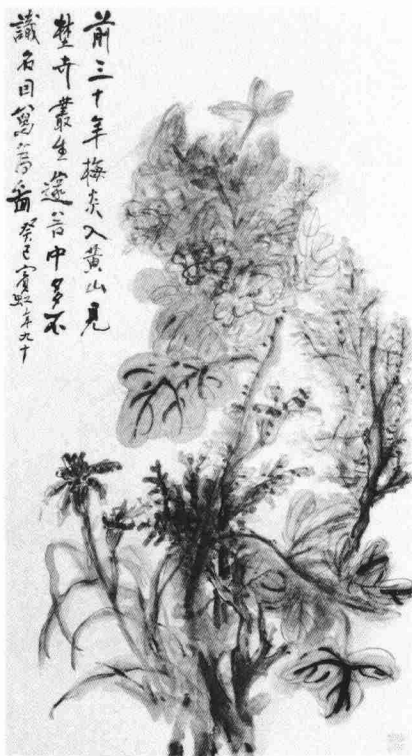 前三十年梅炎入黃山見
壄卉叢生邃谷中多不
識名因寫啚癸巳賓虹年九十